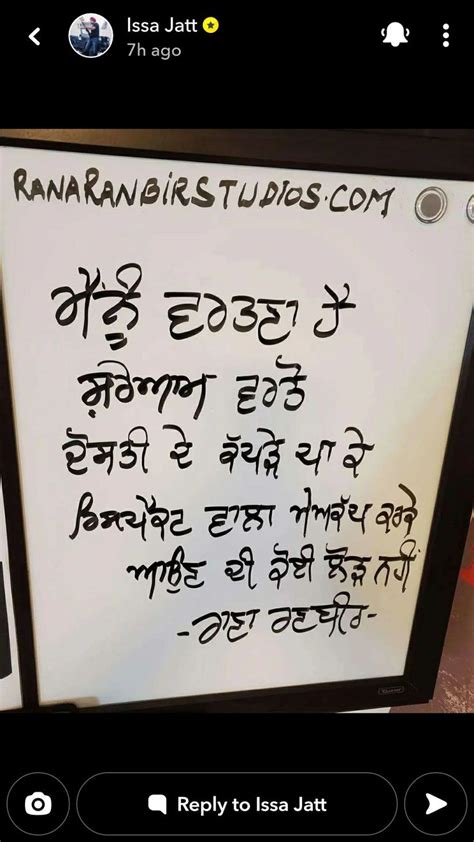 Issa Jatt
7h ago
RANARANBIRSTUDIOS.COM
ਮੈਂਨੂੰ ਵਰਤਣਾ ਹੈ
ਸ਼ਰੇਆਮ ਵਰਤੋ
ਦੋਸਤੀ ਦੇ ਕੱਪੜੇ ਪਾ ਕੇ
ਰਿਸਪੈਕਟ ਵਾਲਾ ਮੇਅਕੱਪ ਕਰਕੇ
ਆਉਣ ਦੀ ਕੋਈ ਲੋੜ ਨਹੀਂ
-ਰਾਣਾ ਰਣਬੀਰ-
Reply to Issa Jatt